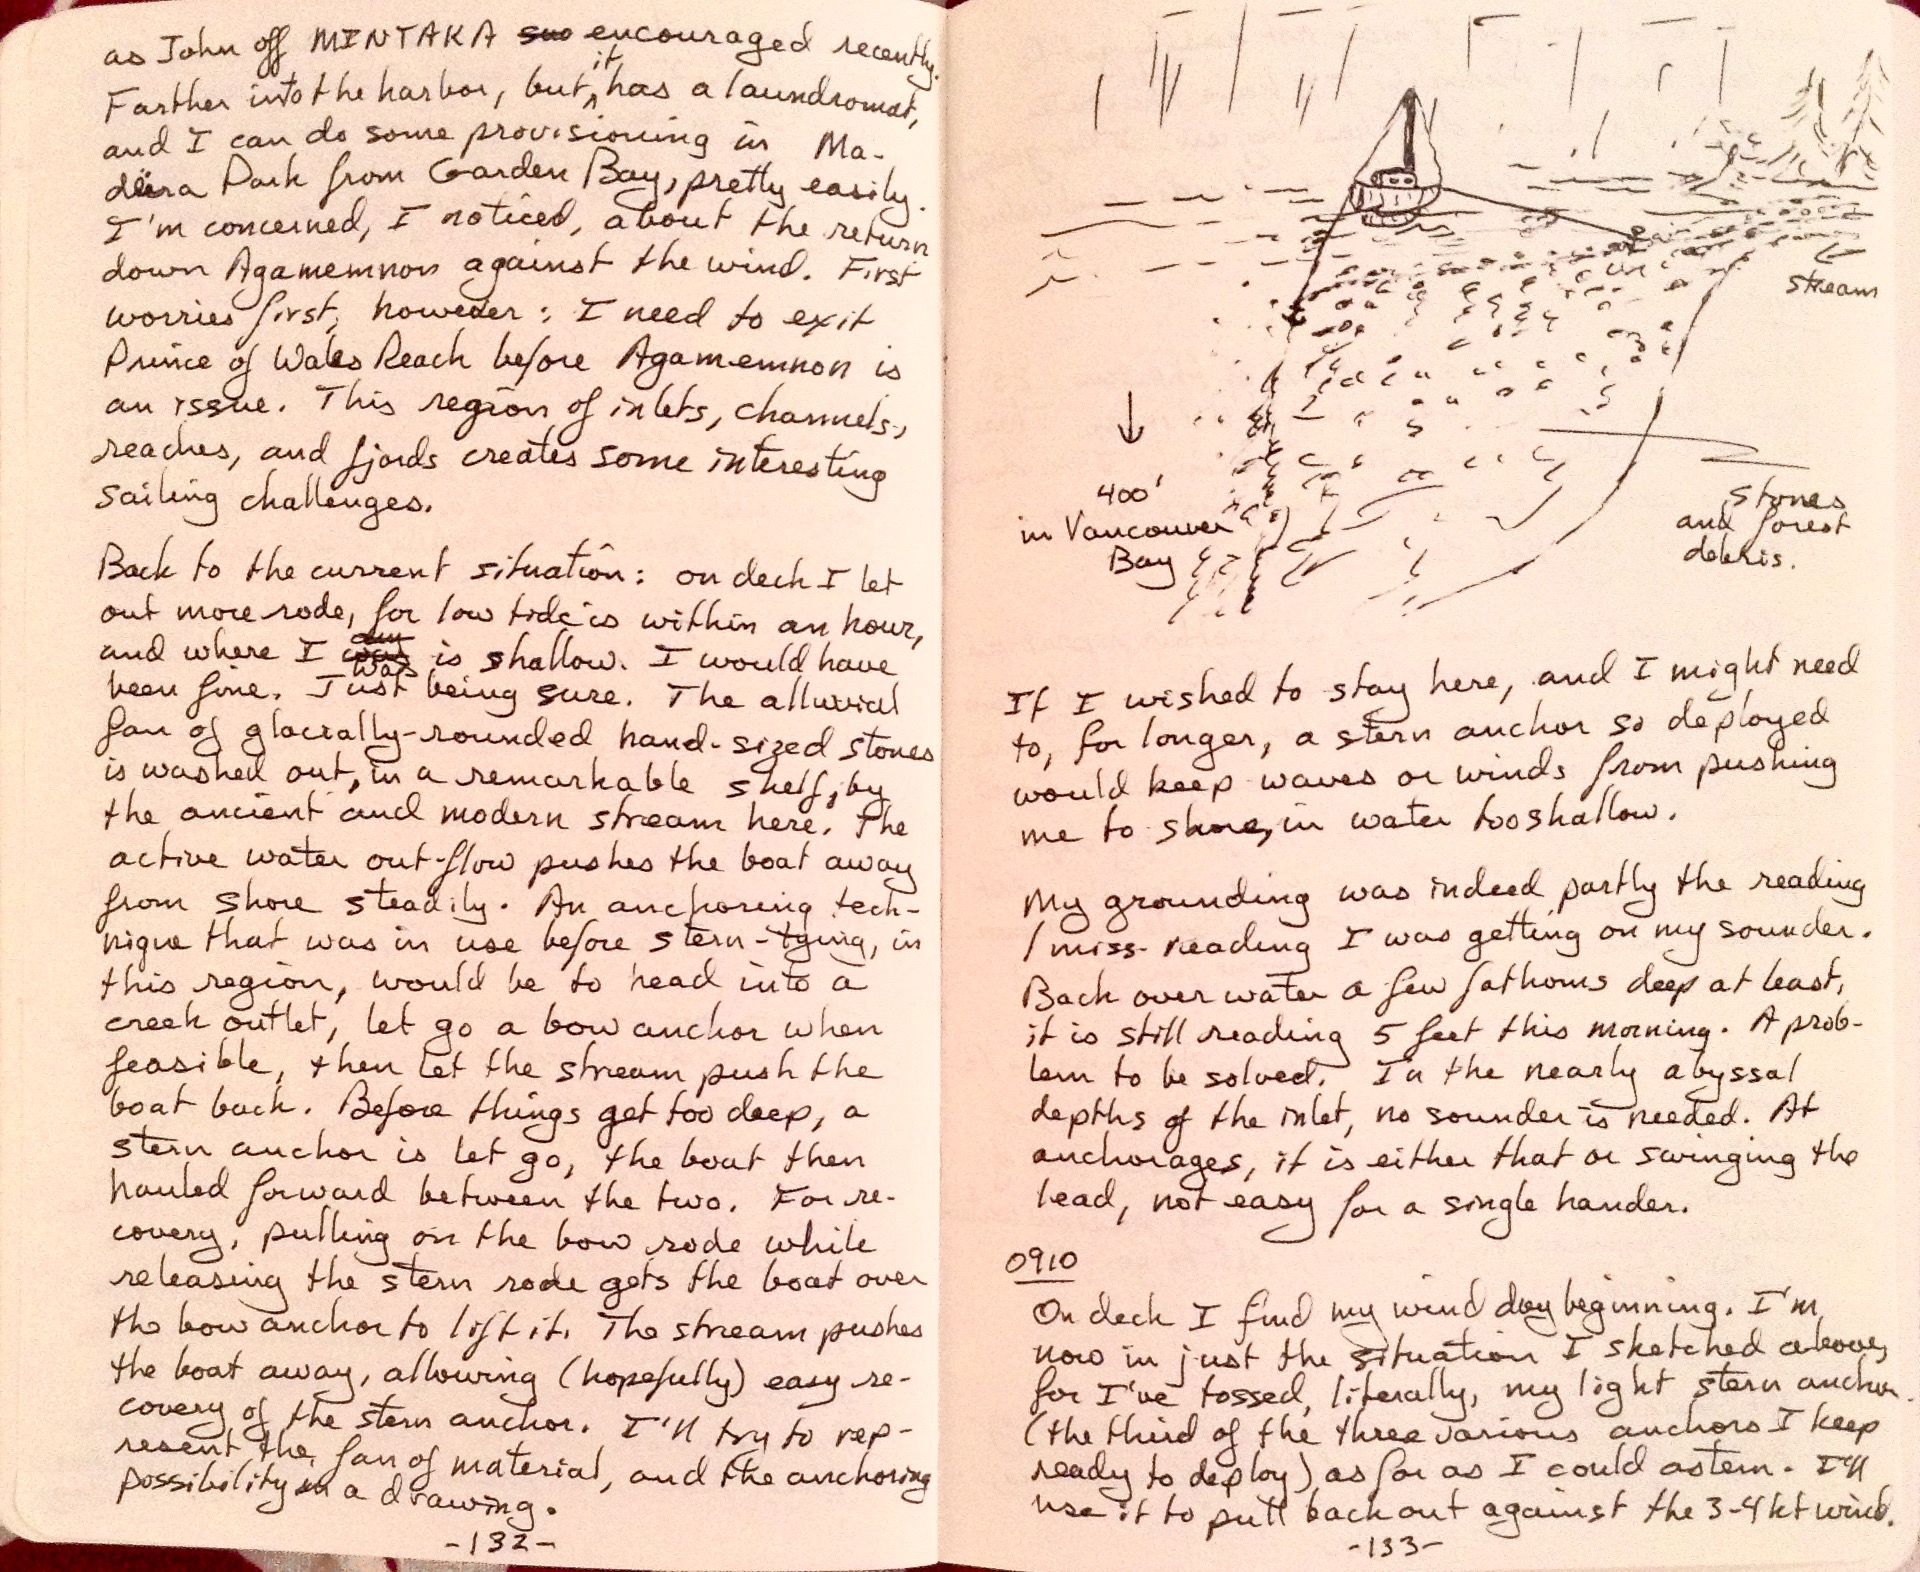 as John off MINTAKA suo encouraged recently.
Farther into the harbor, but it has a laundromat,
and I can do some provisioning in Ma-
deira Park from Garden Bay, pretty easily.
I'm concerned, I noticed, about the return
down Agamemnon against the wind. First
worries first, however: I need to exit
Prince of Wales Reach before Agamemnon is
an issue. This region of inlets, channels,
reaches, and fjords creates some interesting
sailing challenges.
Back to the current situation: on deck I let
out more rode, for low tide is within an hour,
and where I was is shallow. I would have
been fine. Just being sure. The alluvial
fan of glacially-rounded hand-sized stones
is washed out, in a remarkable shelf, by
the ancient and modern stream here. The
active water out-flow pushes the boat away
from shore steadily. An anchoring tech-
nique that was in use before stern-tying, in
this region, would be to head into a
creek outlet, let go a bow anchor when
feasible, then let the stream push the
boat back. Before things get too deep, a
stern anchor is let go, the boat then
hauled forward between the two. For re-
covery, pulling on the bow rode while
releasing the stern rode gets the boat over
the bow anchor to lift it. The stream pushes
the boat away, allowing (hopefully) easy re-
covery of the stern anchor. I'll try to rep-
resent the fan of material, and the anchoring
possibility in a drawing.
-132-
stream
400'
in Vancouver
Bay
stones
and forest
debris.
If I wished to stay here, and I might need
to, for longer, a stern anchor so deployed
would keep waves or winds from pushing
me to shore, in water too shallow.
My grounding was indeed partly the reading
/miss-reading I was getting on my sounder.
Back over water a few fathoms deep at least,
it is still reading 5 feet this morning. A prob-
lem to be solved. In the nearly abyssal
depths of the inlet, no sounder is needed. At
anchorages, it is either that or swinging the
lead, not easy for a single hander.
0910
On deck I find my wind day beginning. I'm
now in just the situation I sketched above,
for I've tossed, literally, my light stern anchor
(the third of the three various anchors I keep
ready to deploy) as far as I could astern. I'll
use it to pull back out against the 3-4kt wind.
-133-